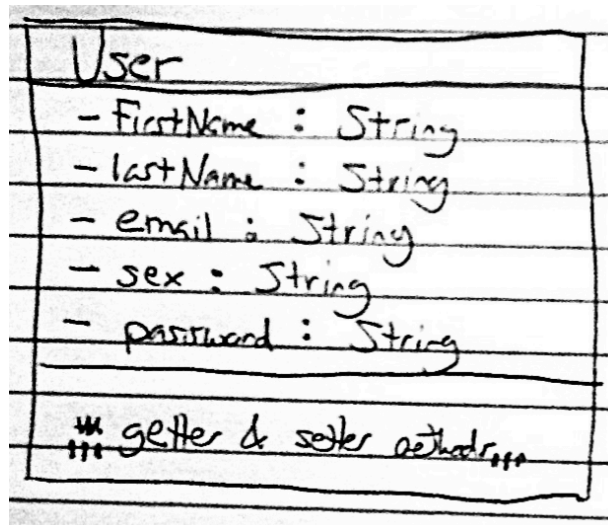 User
- FirstName : String
- lastName : String
- email : String
- sex : String
- password : String
""" getter & setter methods,,,